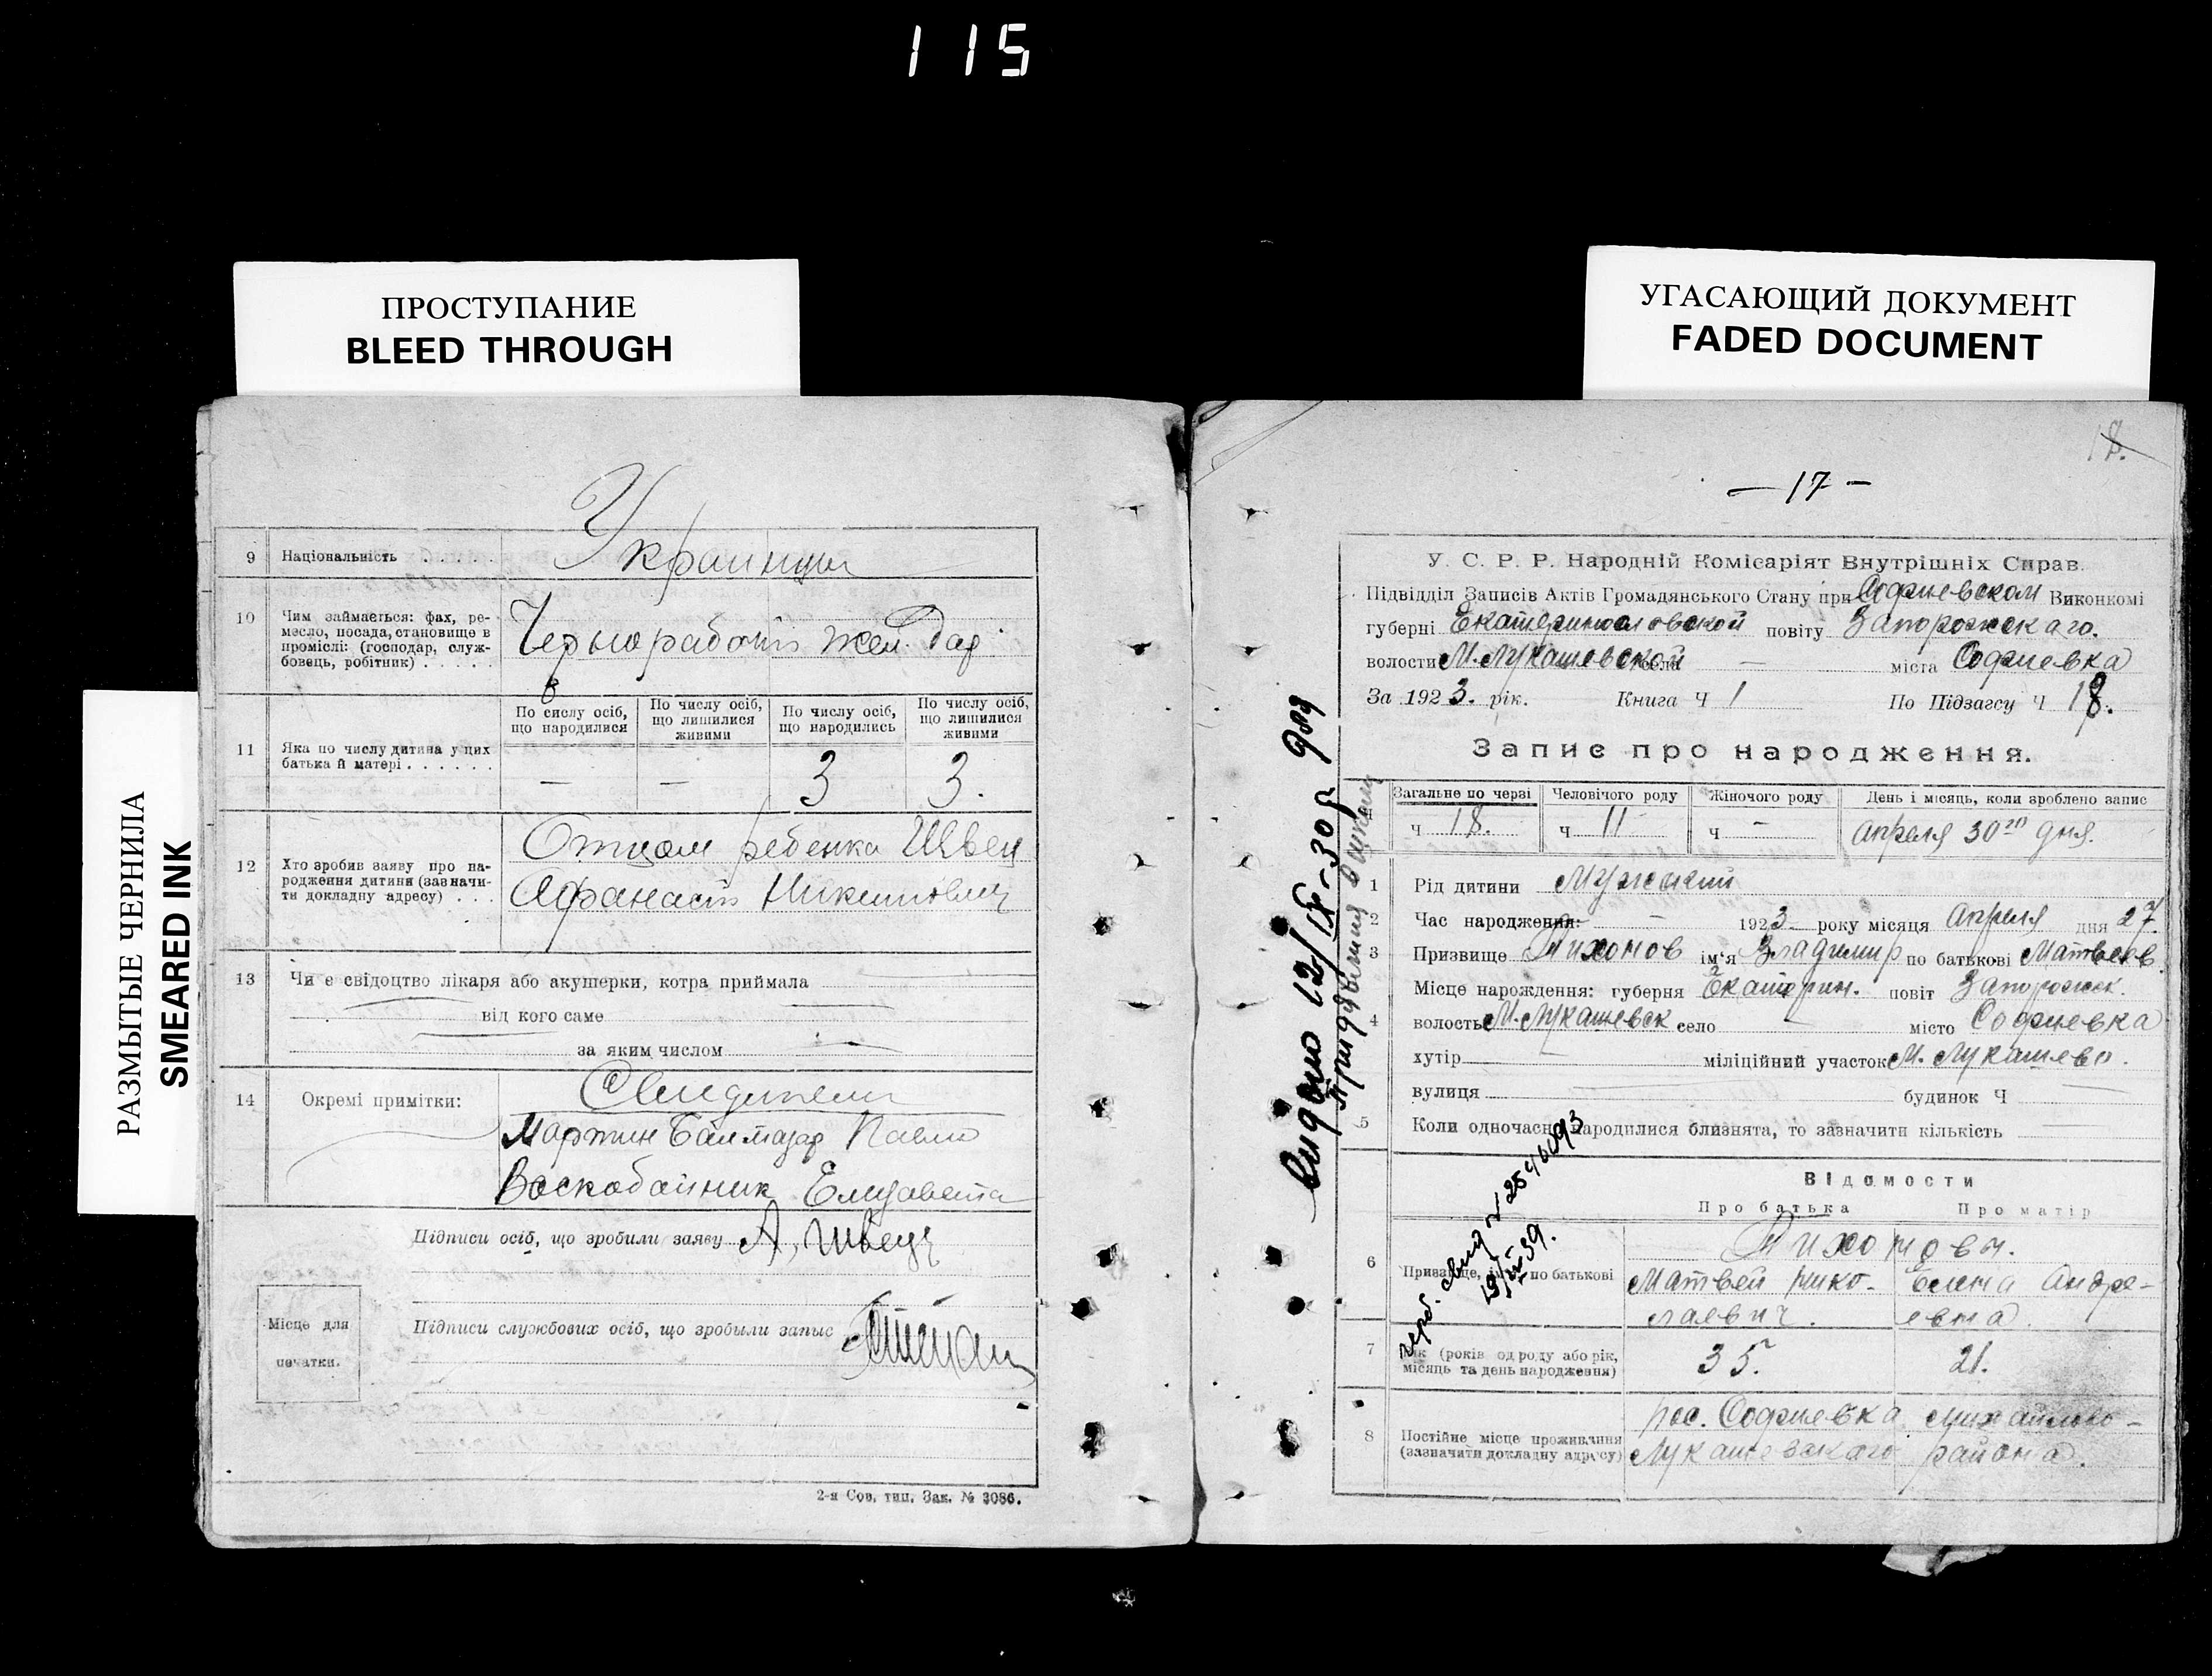 115
ПРОСТУПАНИЕ
BLEED THROUGH
УГАСАЮЩИЙ ДОКУМЕНТ
FADED DOCUMENT
РАЗМЫТЫЕ ЧЕРНИЛА
SMEARED INK
Украинцы
9 Національність . . . . .
10 Чим займається: фах, ре-
месло, посада, становище в
промислі: (господар, служ-
бовець, робітник) . . . . .
Чернорабочий жел. дор.
в
11 Яка по числу дитина у цих
батька й матері . . . . . .
По сислу осіб, що народилися
По числу осіб, що лишилися живими
По числу осіб, що народились
По числу осіб, що лишилися живими
— — 3 3.
12 Хто зробив заяву про на-
родження дитини (зазначи-
ти докладну адресу) . . .
Отцом ребенка Швец
Афанасий Никитович
13 Чи є свідоцтво лікаря або акушерки, котра приймала
від кого саме
за яким числом
14 Окремі примітки:
Свидетели
Мартин Балтазар Павло
Воскобойник Елизавета
Підписи осіб, що зробили заяву А, Швец
Місце для
печатки.
Підписи службових осіб, що зробыли запыс
2-я Сов. тип. Зак. № 3086.
18.
— 17 —
У. С. Р. Р. Народній Комісаріят Внутрішніх Справ.
Підвідділ Записів Актів Громадянського Стану при Софиевском Виконкомі
губерні Екатеринославской повіту Запорожскаго.
волости М.Лукашевской села — міста Софиевка
За 1923. рік. Книга Ч 1 По Підзагсу Ч 18.
Запис про народження.
Загальне по черзі Человічого роду Жіночого роду День і місяць, коли зроблено запис
ч 18. ч 11 ч — апреля 30го дня.
1 Рід дитини Мужский
2 Час народження: — 1923 року місяця Апреля дня 27
3 Призвище Тихонов ім'я Владимир по батькові Матвеев.
4 Місце нарождення: губерня Екатерин. повіт Запорожск.
волость М.Лукашевск село — місто Софиевка
хутір — міліційний участок М. Лукашево.
вулиця будинок Ч
5 Коли одночасно народилися близнята, то зазначити кількість
Відомости
Про батька Про матір
6 Призвище, ім'я по батькові
Тихоновы.
Матвей Нико- Елена Андре-
лаевич. евна.
7 Вік (років од роду або рік,
місяць та день народження)
35. 21.
8 Постійне місце проживання
(зазначити докладну адресу)
пос. Софиевка Михайлово-
Лукашевскаго района.
Видано 12/IX-30 р.
Повт. свид № 2546093
19/II 39.